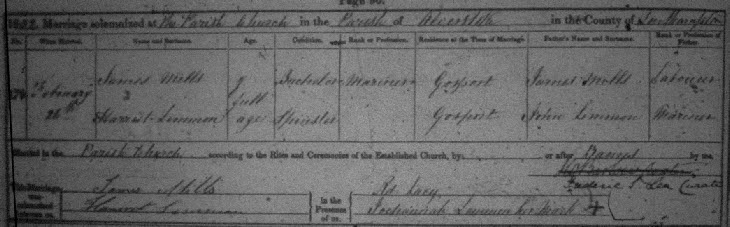 Page 90.
1852. Marriage solemnized at The Parish Church in the Parish of Alverstoke in the County of Southampton
No. When Married. Name and Surname. Age. Condition. Rank or Profession. Residence at the Time of Marriage. Father's Name and Surname. Rank or Profession of Father.
February James Mills of Bachelor Mariner Gosport James Mills Labourer
& full
Harriet Limmon age Spinster Gosport John Limmon Mariner
Married in the Parish Church according to the Rites and Ceremonies of the Established Church, by or after Banns by me,
Frederic S. Lea Curate
This Marriage was solemnized between us, James Mills in the Presence of us,
Harriet Limmon Limmon her Mark +